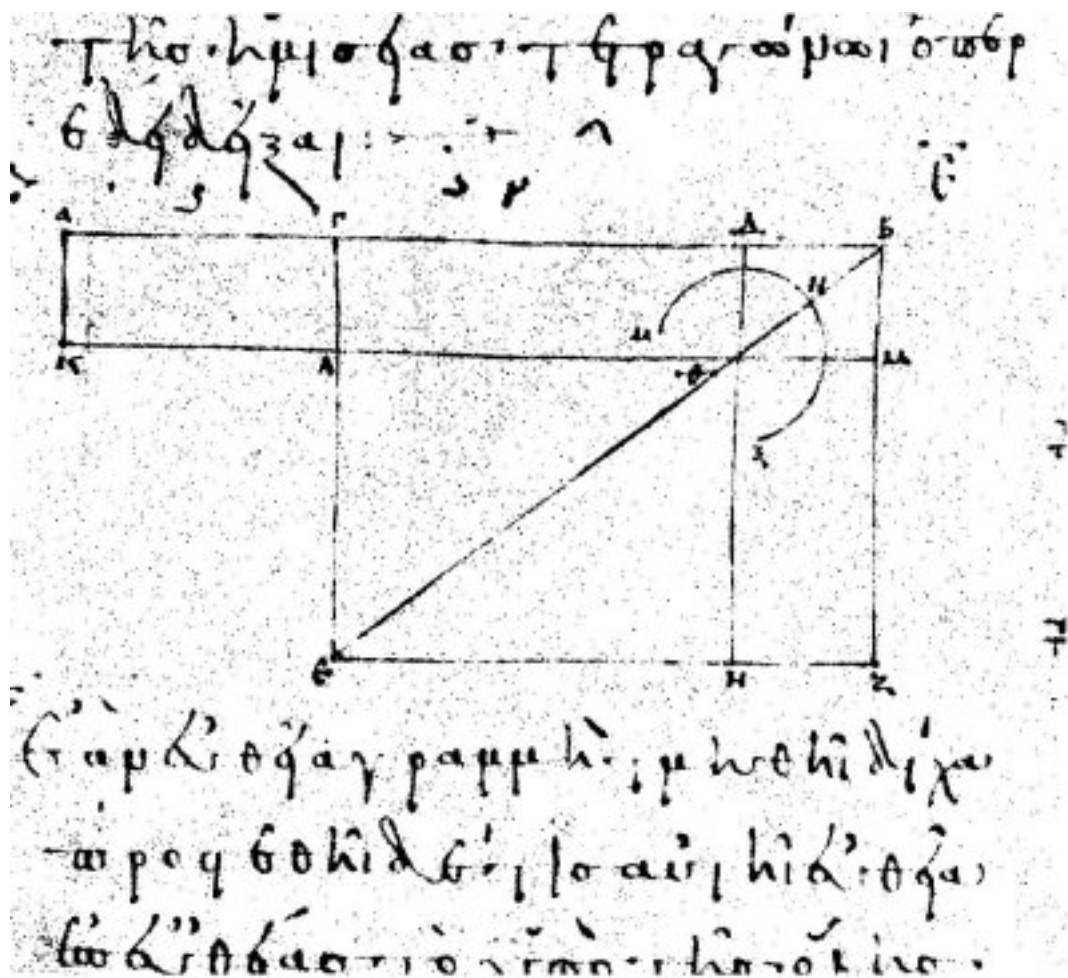 τῆς ἡμισείας τετραγώνωι ὅπερ
ἔδει δεῖξαι :~
Α Γ Δ Β
Ν
Μ
Κ Λ Θ Μ
Ξ
Ε Η Ζ
Ἐὰν εὐθεῖα γραμμὴ τμηθῆι δίχα
προστεθῆι δέ τις αὐτῆι εὐθεῖα
ἐπ' εὐθείας τὸ ὑπὸ τῆς ὅλης